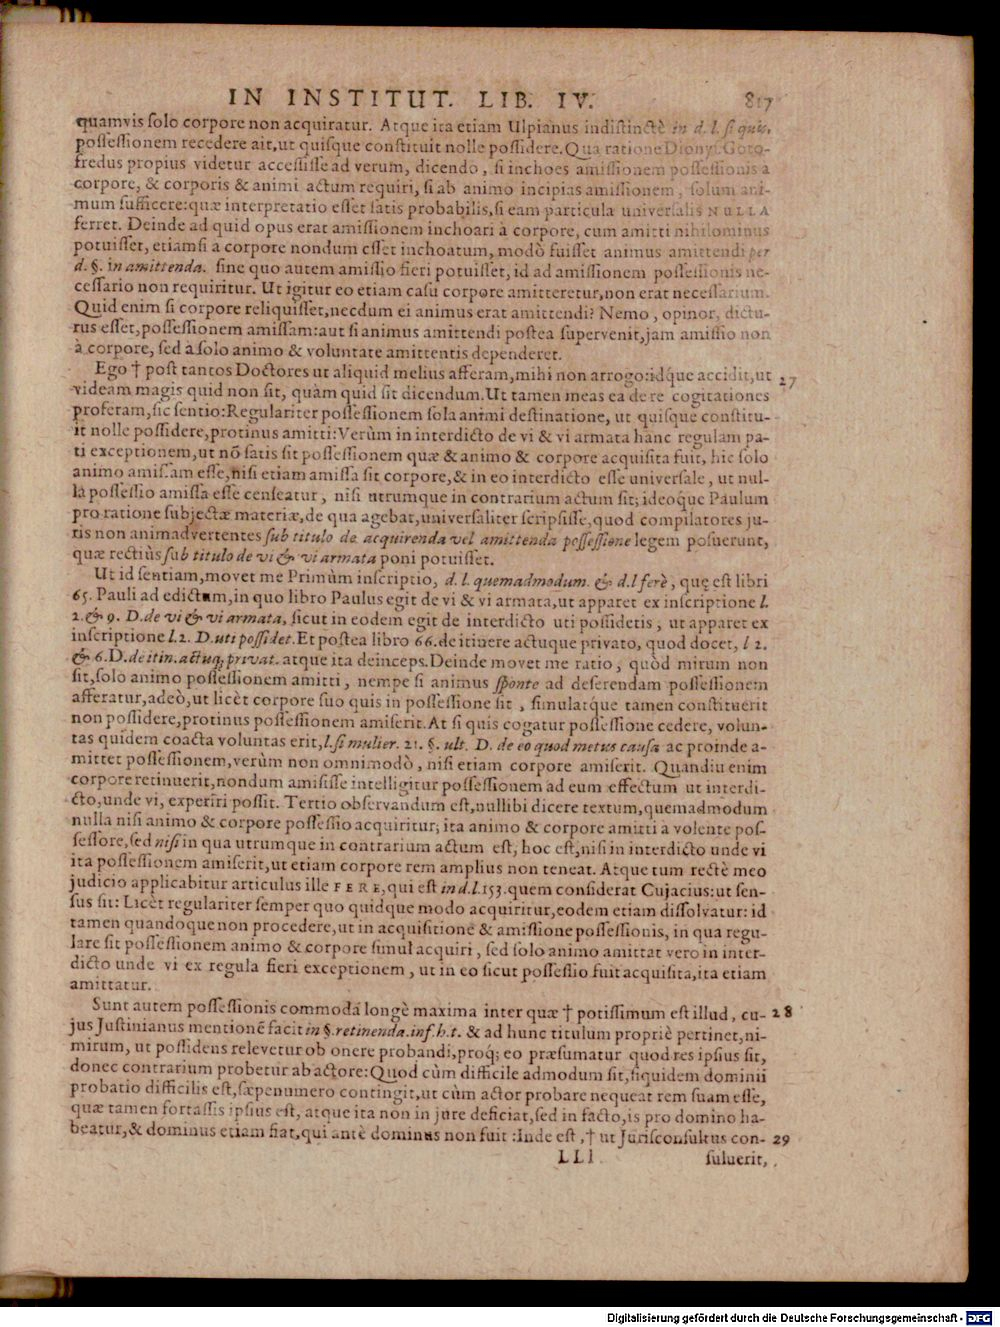 IN INSTITUT. LIB. IV. 817
quamvis solo corpore non acquiratur. Atque ita etiam Ulpianus indistinctè in d. l. si quis,
possessionem recedere ait, ut quisque constituit nolle possidere. Qua ratione Dionys. Goto-
fredus propius videtur accessisse ad verum, dicendo, si inchoes amissionem possessionis a
corpore, & corporis & animi actum requiri, si ab animo incipias amissionem, solum ani-
mum sufficere: quæ interpretatio esset satis probabilis, si eam particula universalis NULLA
ferret. Deinde ad quid opus erat amissionem inchoari à corpore, cum amitti nihilominus
potuisset, etiamsi a corpore nondum esset inchoatum, modò fuisset animus amittendi per
d. §. in amittenda. sine quo autem amissio fieri potuisset, id ad amissionem possessionis ne-
cessario non requiritur. Ut igitur eo etiam casu corpore amitteretur, non erat necessarium.
Quid enim si corpore reliquisset, necdum ei animus erat amittendi? Nemo, opinor, dictu-
rus esset, possessionem amissam: aut si animus amittendi postea supervenit, jam amissio non
à corpore, sed à solo animo & voluntate amittentis dependeret.
Ego † post tantos Doctores ut aliquid melius afferam, mihi non arrogo: idque accidit, ut 27
videam magis quid non sit, quàm quid sit dicendum. Ut tamen meas ea de re cogitationes
proferam, sic sentio: Regulariter possessionem sola animi destinatione, ut quisque constitu-
it nolle possidere, protinus amitti: Verùm in interdicto de vi & vi armata hanc regulam pa-
ti exceptionem, ut nõ satis sit possessionem quæ & animo & corpore acquisita fuit, hic solo
animo amissam esse, nisi etiam amissa sit corpore, & in eo interdicto esse universale, ut nul-
la possessio amissa esse censeatur, nisi utrumque in contrarium actum sit; ideoque Paulum
pro ratione subjectæ materiæ, de qua agebat, universaliter scripsisse, quod compilatores ju-
ris non animadvertentes sub titulo de acquirenda vel amittenda possessione legem posuerunt,
quæ rectiùs sub titulo de vi & vi armata poni potuisset.
Ut id sentiam, movet me Primùm inscriptio, d. l. quemadmodum. & d. l ferè, quę est libri
65. Pauli ad edictum, in quo libro Paulus egit de vi & vi armata, ut apparet ex inscriptione l.
2. & 9. D. de vi & vi armata, sicut in eodem egit de interdicto uti possidetis, ut apparet ex
inscriptione l. 2. D. uti possidet. Et postea libro 66. de itinere actuque privato, quod docet, l 2.
& 6. D. de itin. actuq; privat. atque ita deinceps. Deinde movet me ratio, quòd mirum non
sit, solo animo possessionem amitti, nempe si animus sponte ad deserendam possessionem
afferatur, adeò, ut licèt corpore suo quis in possessione sit, simulatque tamen constituerit
non possidere, protinus possessionem amiserit. At si quis cogatur possessione cedere, volun-
tas quidem coacta voluntas erit, l. si mulier. 21. §. ult. D. de eo quod metus causa ac proinde a-
mittet possessionem, verùm non omnimodò, nisi etiam corpore amiserit. Quandiu enim
corpore retinuerit, nondum amisisse intelligitur possessionem ad eum effectum ut interdi-
cto, unde vi, experiri possit. Tertio observandum est, nullibi dicere textum, quemadmodum
nulla nisi animo & corpore possessio acquiritur; ita animo & corpore amitti à volente pos-
sessore, sed nisi in qua utrumque in contrarium actum est, hoc est, nisi in interdicto unde vi
ita possessionem amiserit, ut etiam corpore rem amplius non teneat. Atque tum rectè meo
judicio applicabitur articulus ille FERE, qui est in d. l. 153. quem considerat Cujacius: ut sen-
sus sit: Licèt regulariter semper quo quidque modo acquiritur, eodem etiam dissolvatur: id
tamen quandoque non procedere, ut in acquisitione & amissione possessionis, in qua regu-
lare sit possessionem animo & corpore simul acquiri, sed solo animo amittat vero in inter-
dicto unde vi ex regula fieri exceptionem, ut in eo sicut possessio fuit acquisita, ita etiam
amittatur.
Sunt autem possessionis commoda longè maxima inter quæ † potissimum est illud, cu- 28
jus Justinianus mentionē facit in §. retinenda. inf. h. t. & ad hunc titulum propriè pertinet, ni-
mirum, ut possidens relevetur ob onere probandi, proq; eo præsumatur quod res ipsius sit,
donec contrarium probetur ab actore: Quod cùm difficile admodum sit, siquidem dominii
probatio difficilis est, sæpenumero contingit, ut cùm actor probare nequeat rem suam esse,
quæ tamen fortassis ipsius est, atque ita non in jure deficiat, sed in facto, is pro domino ha-
beatur, & dominus etiam fiat, qui antè dominus non fuit: Inde est, † ut Jurisconsultus con- 29
LLl suluerit,
Digitalisierung gefördert durch die Deutsche Forschungsgemeinschaft - DFG